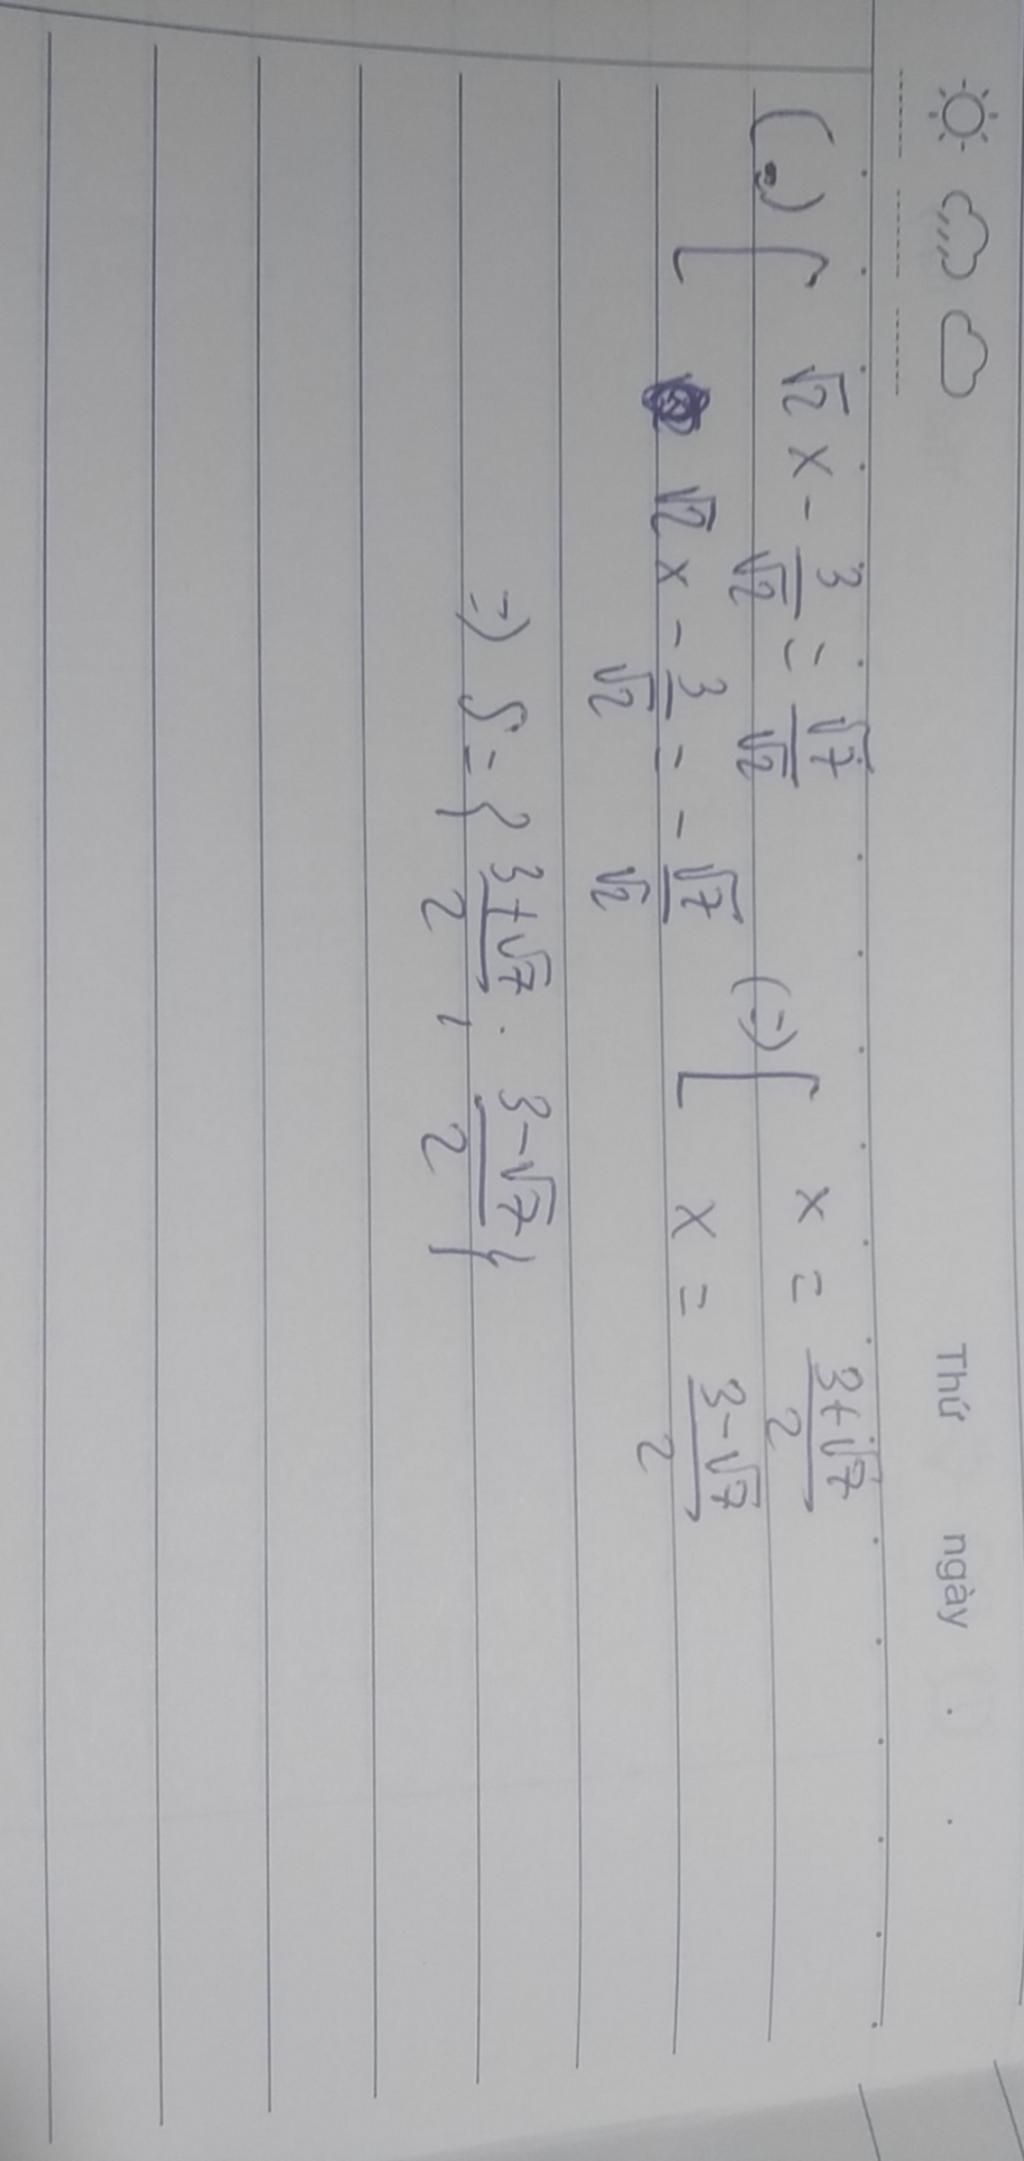 Thứ ngày
(=) [ √2 x - 3/√2 = √7/√2 (=) [ x = (3+√7)/2
√2 x - 3/√2 = - √7/√2 x = (3-√7)/2
=) S = { (3+√7)/2 , (3-√7)/2 }